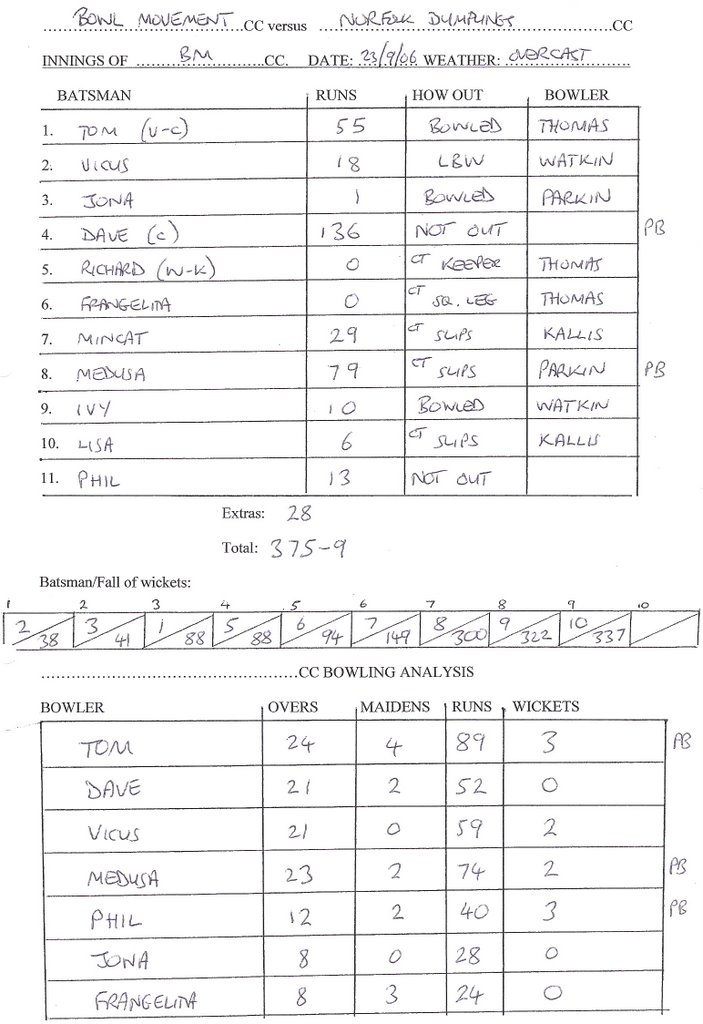 BOWL MOVEMENT CC versus NORFOLK DUMPLINGS CC
INNINGS OF BM CC. DATE: 23/9/06 WEATHER: OVERCAST
BATSMAN RUNS HOW OUT BOWLER
1. TOM (V-C) 55 BOWLED THOMAS
2. VICUS 18 LBW WATKIN
3. JONA 1 BOWLED PARKIN
4. DAVE (C) 136 NOT OUT PB
5. RICHARD (W-K) 0 CT KEEPER THOMAS
6. FRANGELITA 0 CT SQ. LEG THOMAS
7. MINCAT 29 CT SLIPS KALLIS
8. MEDUSA 79 CT SLIPS PARKIN PB
9. IVY 10 BOWLED WATKIN
10. LISA 6 CT SLIPS KALLIS
11. PHIL 13 NOT OUT
Extras: 28
Total: 375-9
Batsman/Fall of wickets:
1 2 3 4 5 6 7 8 9 10
2/38 3/41 1/88 5/88 6/94 7/149 8/300 9/322 10/337
CC BOWLING ANALYSIS
BOWLER OVERS MAIDENS RUNS WICKETS
TOM 24 4 89 3 PB
DAVE 21 2 52 0
VICUS 21 0 59 2
MEDUSA 23 2 74 2 PB
PHIL 12 2 40 3 PB
JONA 8 0 28 0
FRANGELITA 8 3 24 0